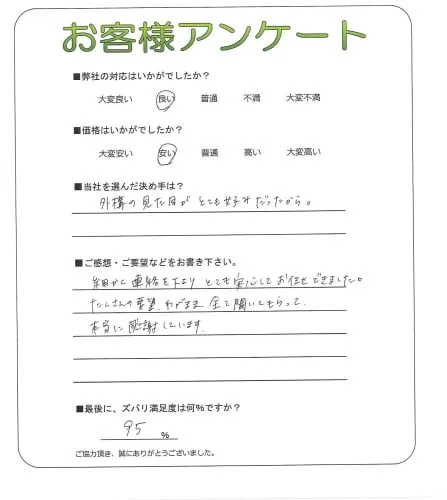 お客様アンケート
■弊社の対応はいかがでしたか？
大変良い 良い 普通 不満 大変不満
■価格はいかがでしたか？
大変安い 安い 普通 高い 大変高い
■当社を選んだ決め手は？
外構の見た目がとても好みだったから。
■ご感想・ご要望などをお書き下さい。
細かく連絡を下さりとても安心してお任せできました。
たくさんの要望、わがまま全て聞いてもらって、
本当に感謝しています。
■最後に、ズバリ満足度は何％ですか？
95 ％
ご協力頂き、誠にありがとうございました。